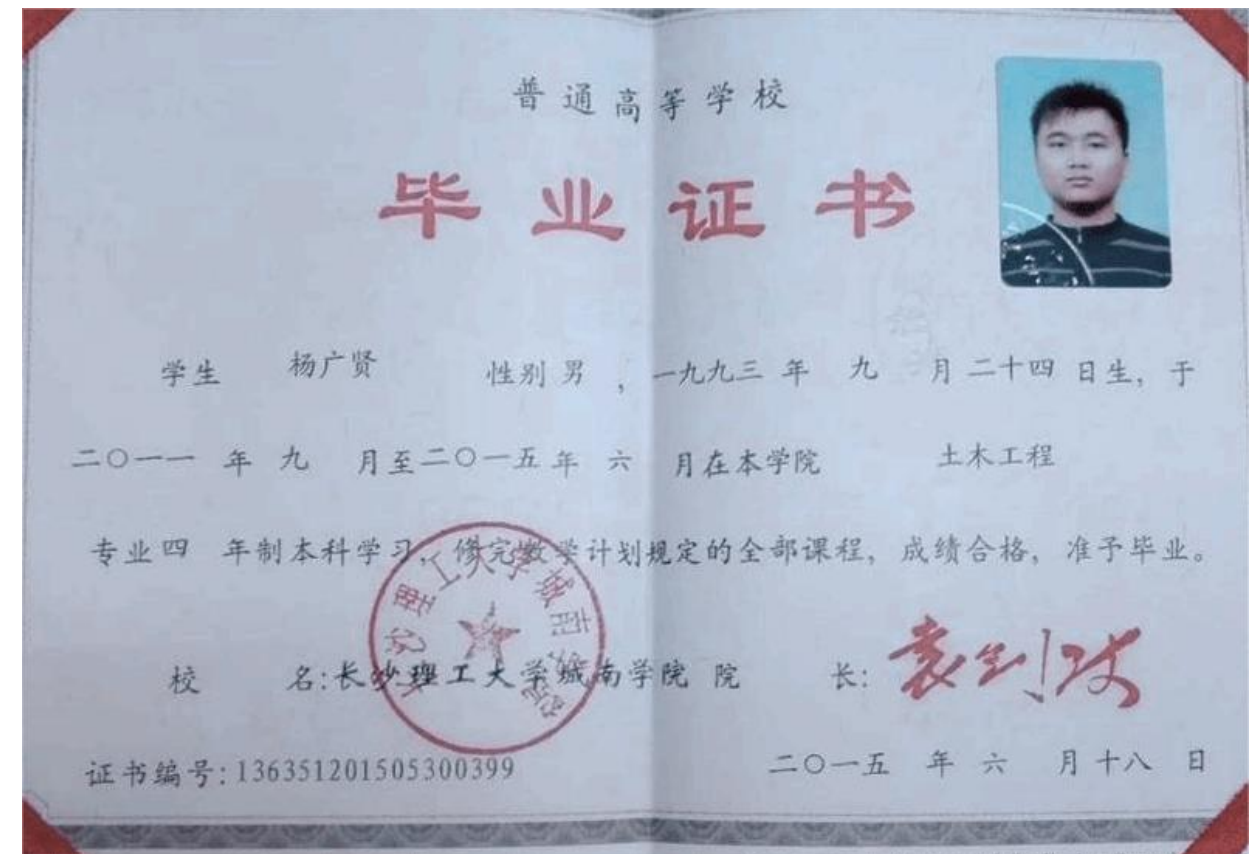 普通高等学校
毕业证书
学生 杨广贤 性别 男 ，一九九三 年 九 月 二十四 日生，于
二〇一一 年 九 月至二〇一五 年 六 月在本学院 土木工程
专业 四 年制本科学习，修完教学计划规定的全部课程，成绩合格，准予毕业。
校 名:长沙理工大学城南学院 院 长:
长沙理工大学城南学院
证书编号:136351201505300399 二〇一五 年 六 月 十八 日